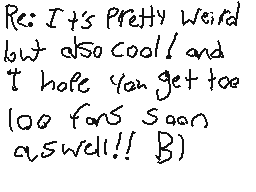 Re: It's pretty weird
but also cool! and
I hope you get too
100 fans soon
aswell!! B)